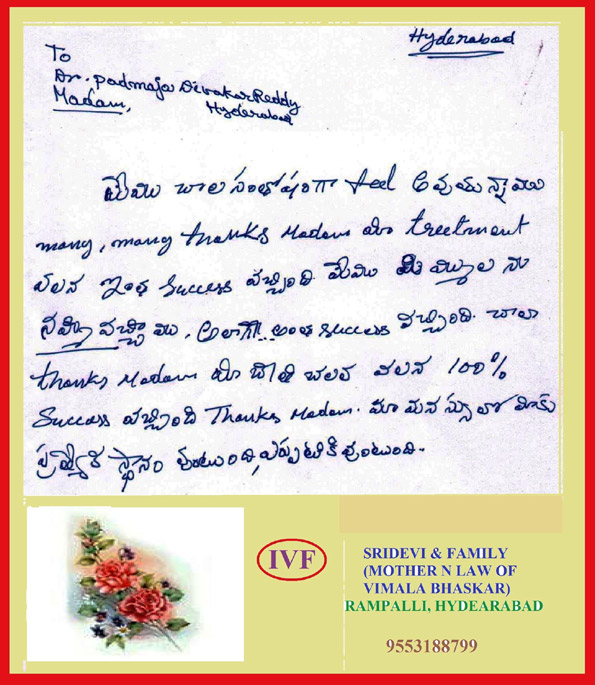 Hyderabad
To
Dr. Padmaja Divakar Reddy
Madam,
Hyderabad
మేము చాల సంతోషంగా feel అవుతున్నాము
many, many thanks Madam మీ treetment
వలన ఇంత success వచ్చింది మేము మిమ్మల్ని
నమ్మి వచ్చాము, అలాగే అంత success వచ్చింది. చాలా
thanks Madam మీ వలన 100%
Success వచ్చింది Thanks Madam. మా మనస్సులో మీకు
ప్రత్యేక స్థానం వుంటుంది, ఎప్పటికి వుంటుంది.
IVF
SRIDEVI & FAMILY
(MOTHER N LAW OF
VIMALA BHASKAR)
RAMPALLI, HYDEARABAD
9553188799